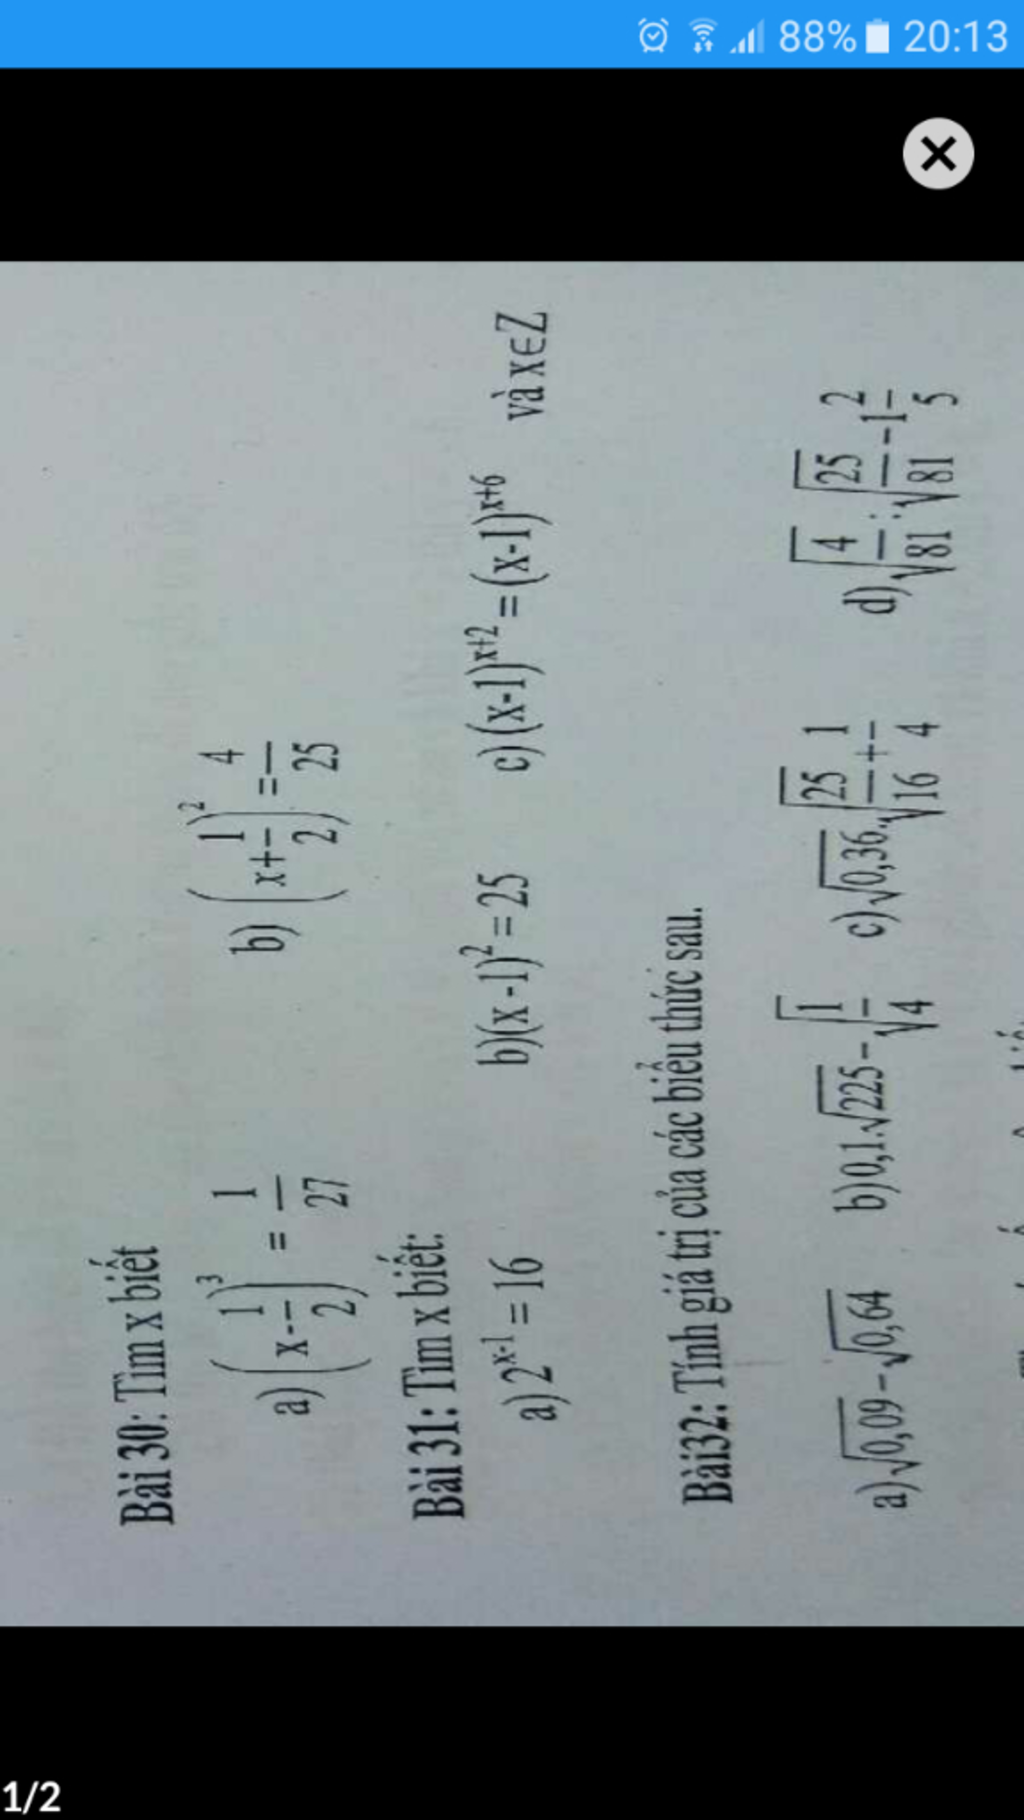 88% 20:13
Bài 30: Tìm x biết
a) (x - 1/2)³ = 1/27 b) (x + 1/2)² = 4/25
Bài 31: Tìm x biết:
a) 2ˣ⁻¹ = 16 b)(x -1)² = 25 c) (x-1)ˣ⁺² = (x-1)ˣ⁺⁶ và x∈Z
Bài32: Tính giá trị của các biểu thức sau.
a)√0,09 - √0,64 b)0,1.√225 - √(1/4) c)√0,36.√(25/16) + 1/4 d)√(4/81) : √(25/81) - 1 2/5
1/2